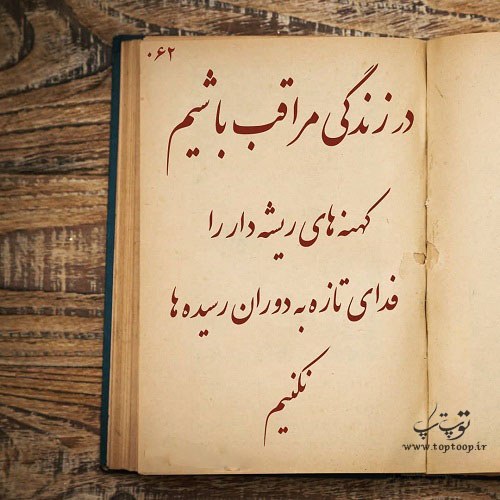 ۰۶۲
در زندگی مراقب باشیم
کهنه های ریشه دار را
فدای تازه به دوران رسیده ها
نکنیم
توپ تاپ
www.toptoop.ir